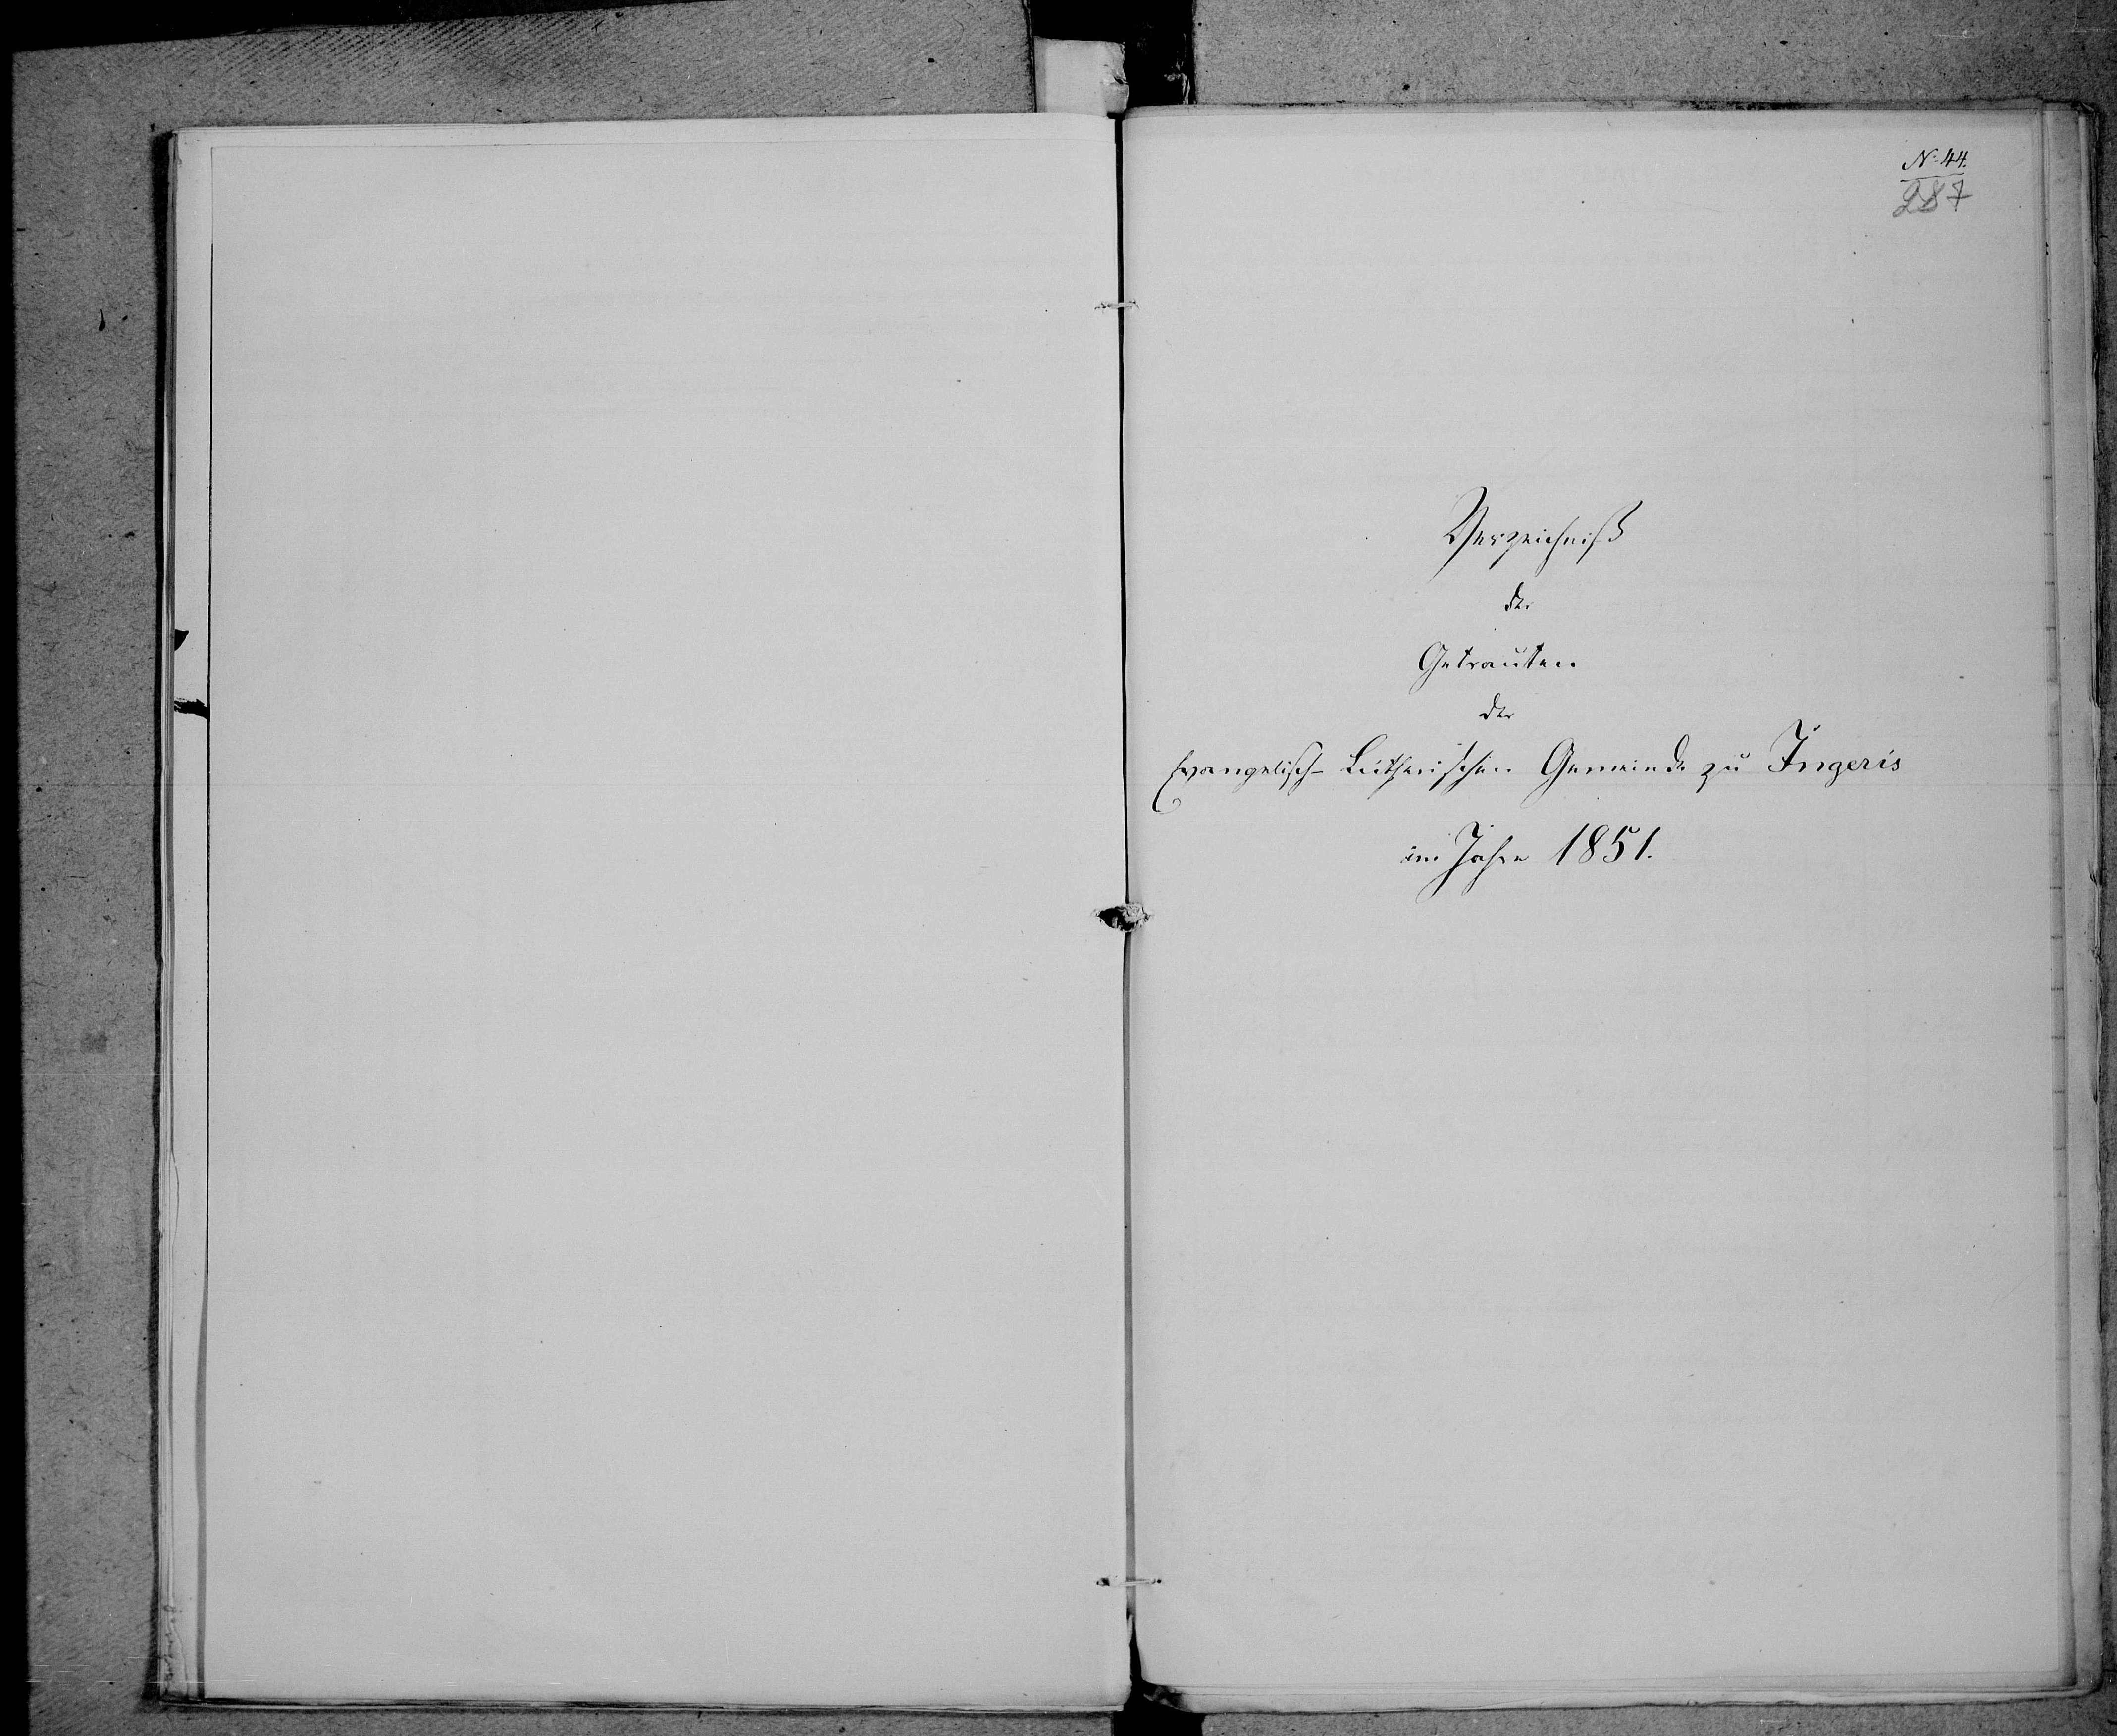 N. 44.
287
Verzeichniß
der
Getrauten
der
Evangelisch-Lutherischen Gemeinde zu Ingeris
im Jahre 1851.